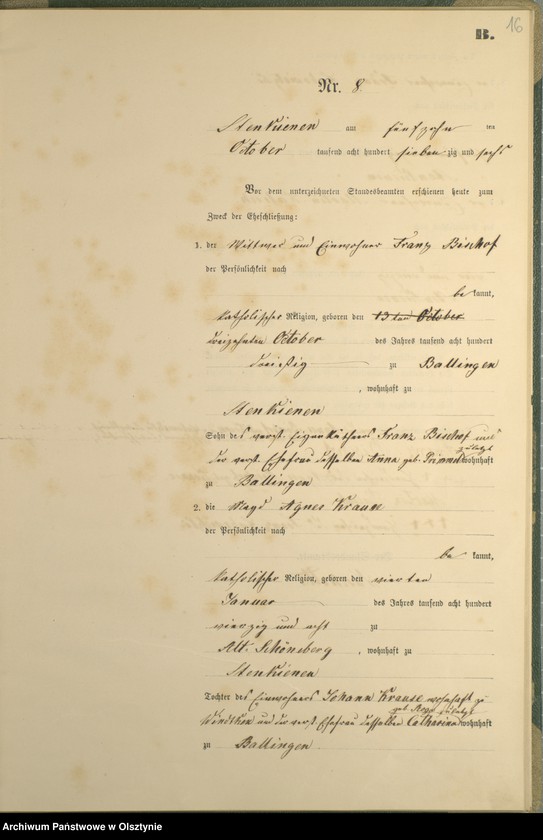 B. 16
Nr. 8.
Stenkienen am fünfzehn ten
October tausend acht hundert sieben zig und sechs
Vor dem unterzeichneten Standesbeamten erschienen heute zum
Zweck der Eheschließung:
1. der Wittwer und Einwohner Franz Bischof
der Persönlichkeit nach
be kannt,
katholischer Religion, geboren den 13 ten October
dreizehnten October des Jahres tausend acht hundert
dreißig zu Ballingen
, wohnhaft zu
Stenkienen
Sohn des verst. Eigenkäthners Franz Bischof und
zuletzt
der verst. Ehefrau desselben Anna geb. wohnhaft
zu Ballingen
2. die Magd Agnes Krause
der Persönlichkeit nach
be kannt,
katholischer Religion, geboren den vierten
Januar des Jahres tausend acht hundert
vierzig und acht zu
Alt-Schöneberg , wohnhaft zu
Stenkienen
Tochter des Einwohners Johann Krause wohnhaft zu
geb. zuletzt
und der verst. Ehefrau desselben Catharina wohnhaft
zu Ballingen
Archiwum Państwowe w Olsztynie